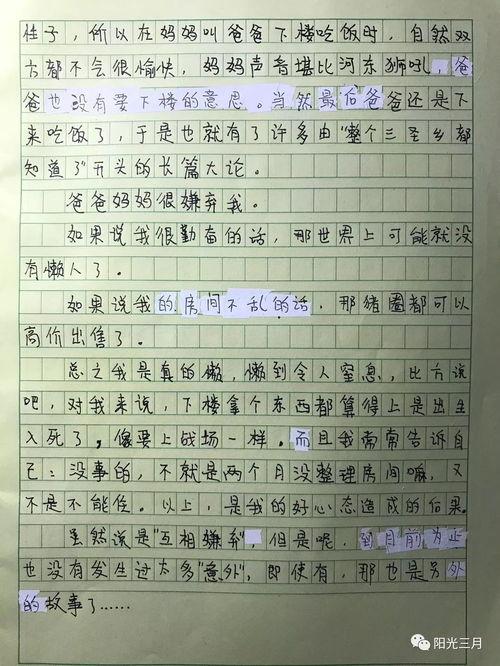 性子，所以在妈妈叫爸爸下楼吃饭时，自然双
方都不会很愉快，妈妈声音堪比河东狮吼，爸
爸也没有要下楼的意思。当然最后爸爸还是下
来吃饭了，于是也就有了许多由"整个三圣乡都
知道了"开头的长篇大论。
爸爸妈妈很嫌弃我。
如果说我很勤奋的话，那世界上可能就没
有懒人了。
如果说我的房间不乱的话，那猪圈都可以
高价出售了。
总之我是真的懒，懒到令人窒息，比方说
吧，对我来说，下楼拿个东西都算得上是出生
入死了，像要上战场一样。而且我常常告诉自
己：没事的，不就是两个月没整理房间嘛，又
不是不能住。以上，是我的好心态造成的后果。
虽然说是"互相嫌弃"，但是呢，到目前为止
也没有发生过太多"意外"，即使有，那也是另外
的故事了……
阳光三月